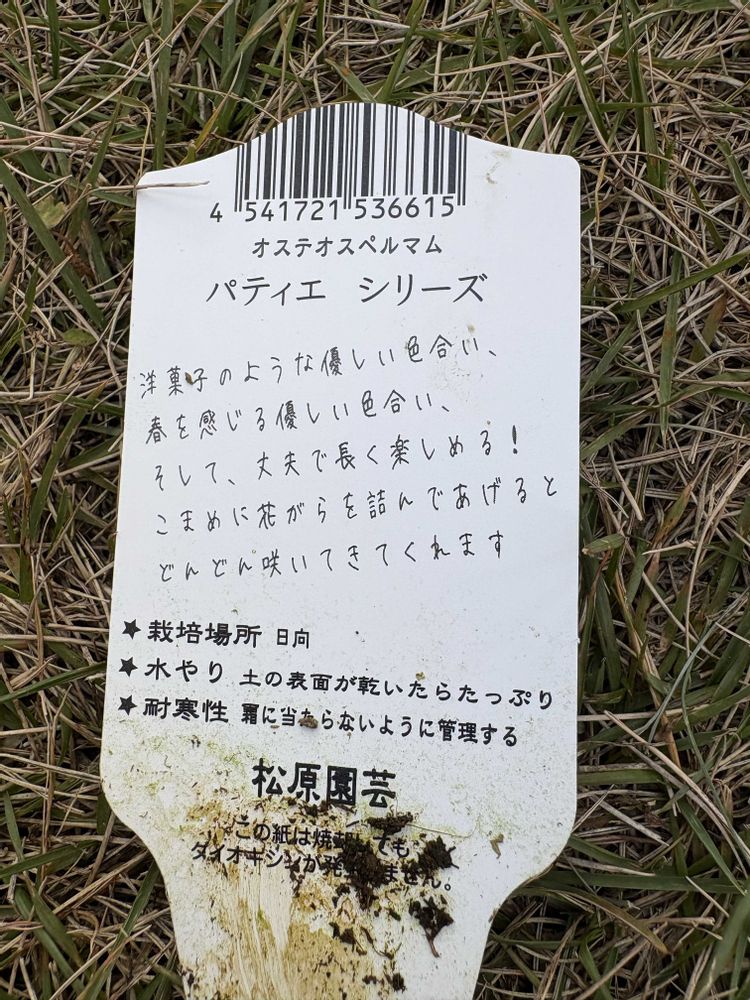 4 541721 536615
オステオスペルマム
パティエ シリーズ
洋菓子のような優しい色合い、
春を感じる優しい色合い、
そして、丈夫で長く楽しめる!
こまめに花がらを詰んであげると
どんどん咲いてきてくれます
★栽培場所 日向
★水やり 土の表面が乾いたらたっぷり
★耐寒性 霜に当たらないように管理する
松原園芸
この紙は焼却しても
ダイオキシンが発生しません。